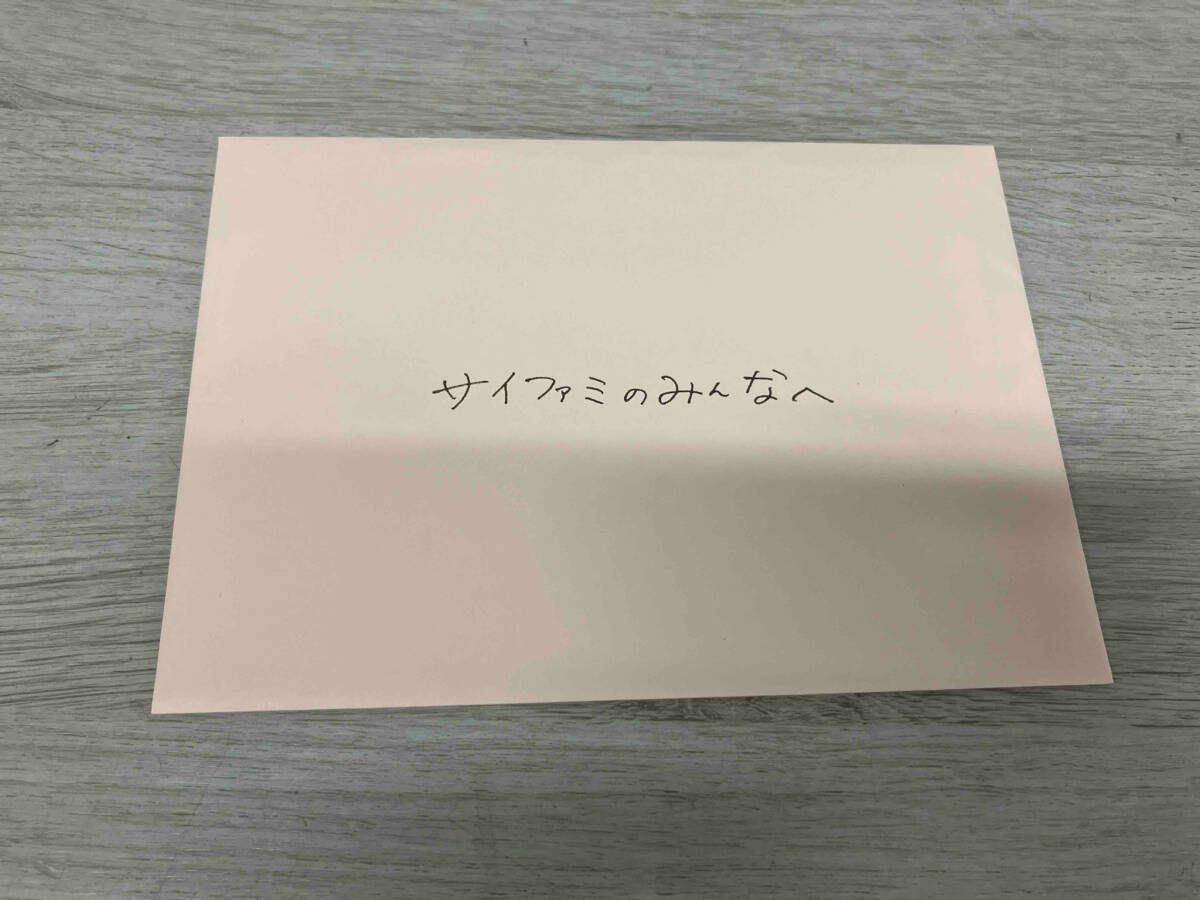 サイファミのみんなへ